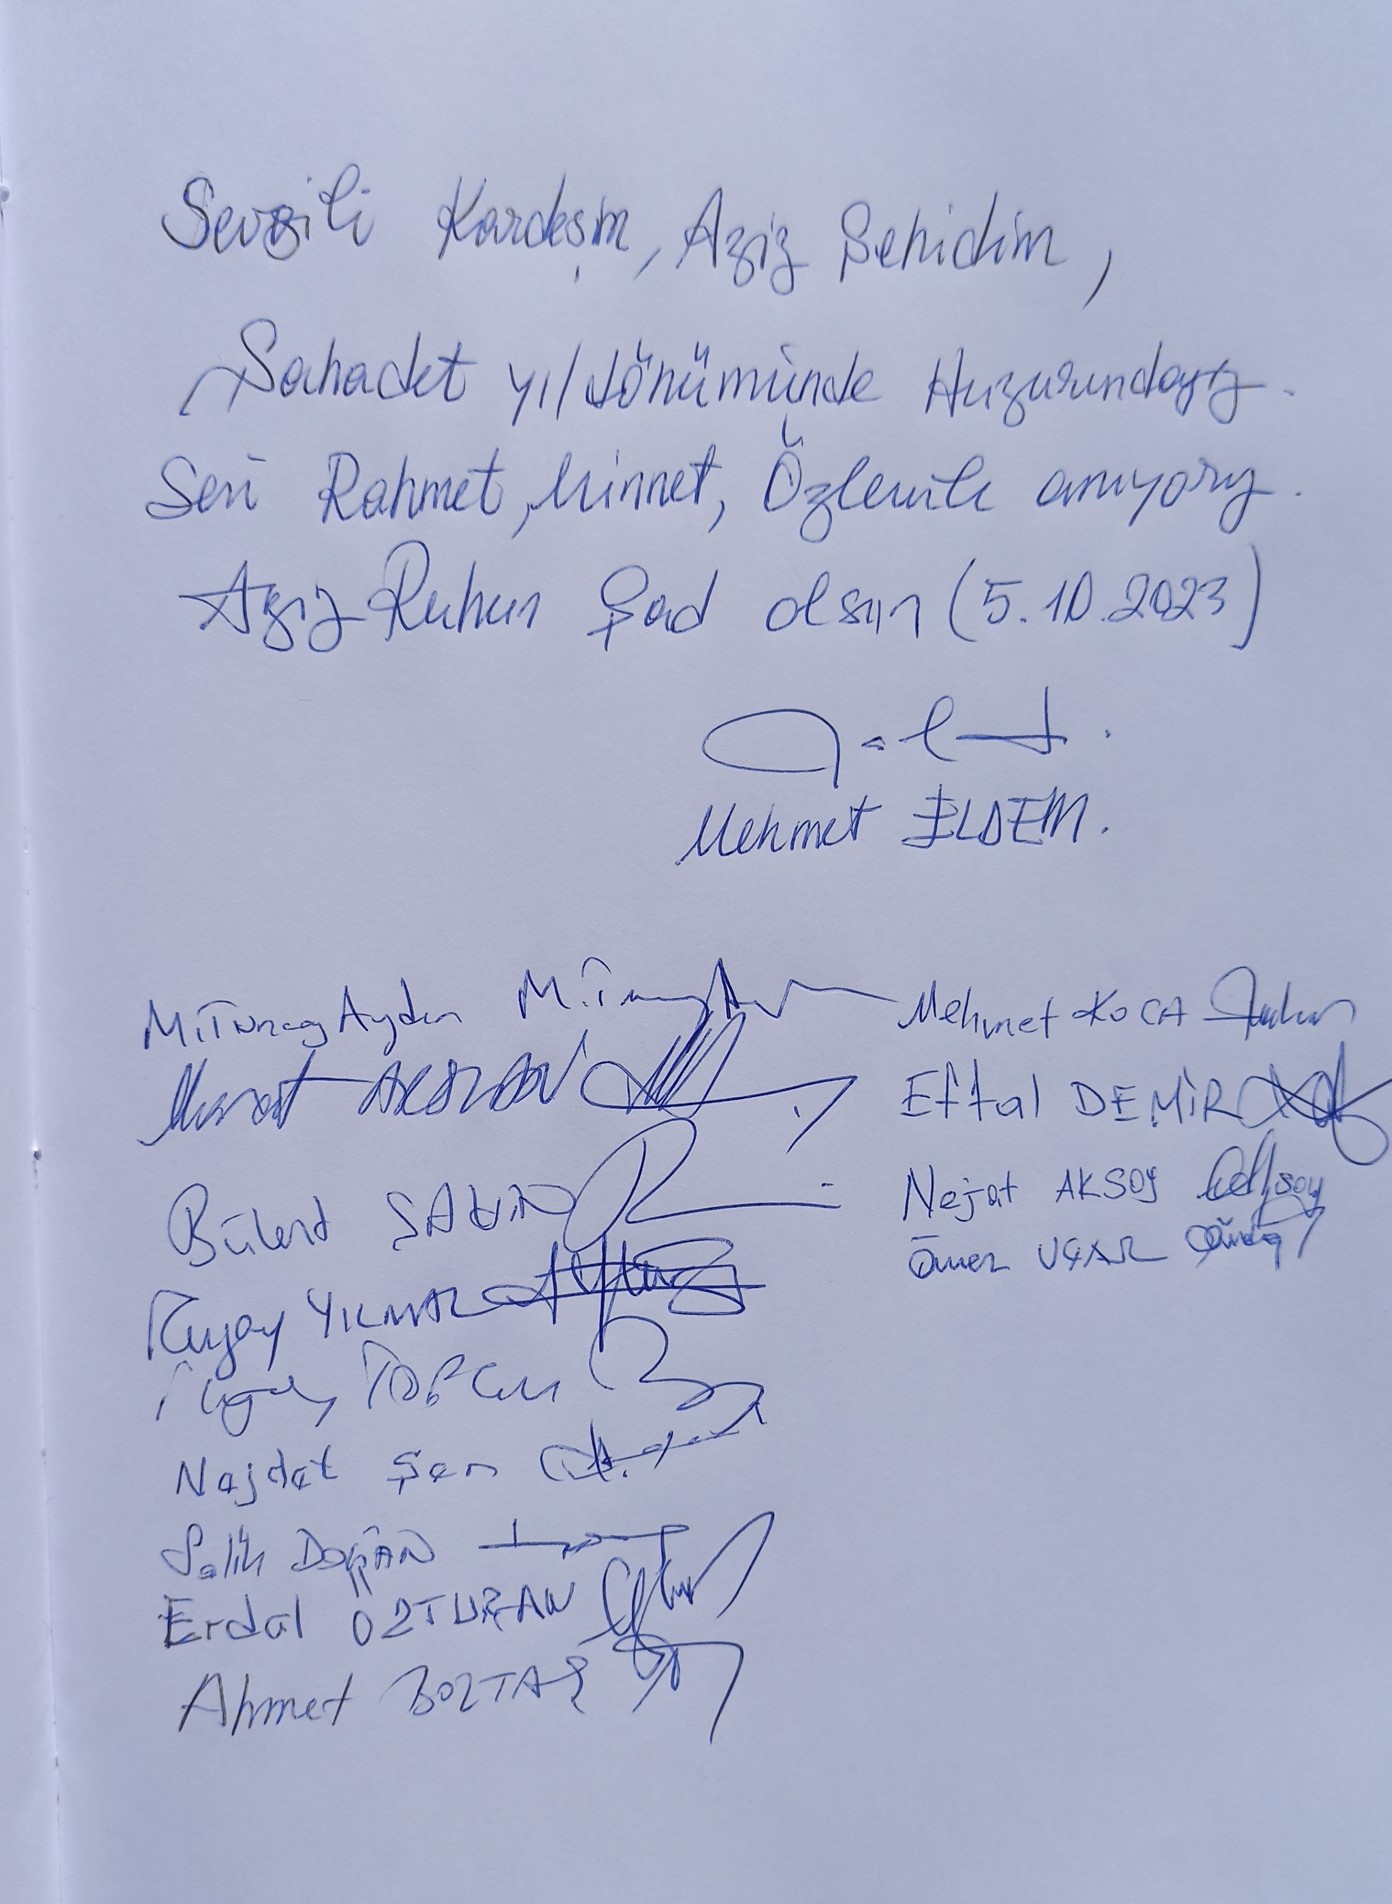 Sevgili Kardeşim, Aziz Şehidim,
Şahadet yıldönümünde Huzurundayız.
Seni Rahmet, Minnet, Özlemle anıyoruz.
Aziz Ruhun Şad olsun (5.10.2023)
Mehmet ELDEM.
M.Tuncay Aydın
Mehmet KOCA
Murat AKASLAN
Eftal DEMİR
Bülent ŞAHİN
Nejat AKSOY
Ömer UÇAR
YILMAZ
TOPCU
Nejdet Şen
Salih DOĞAN
Erdal ÖZTURAN
Ahmet BOZTAŞ